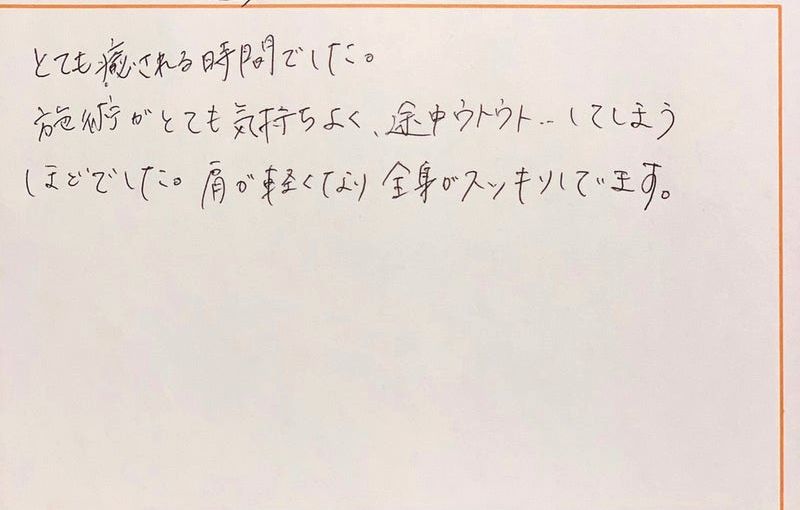 とても癒される時間でした。
施術がとても気持ちよく、途中ウトウト…してしまう
ほどでした。肩が軽くなり全身がスッキリしています。